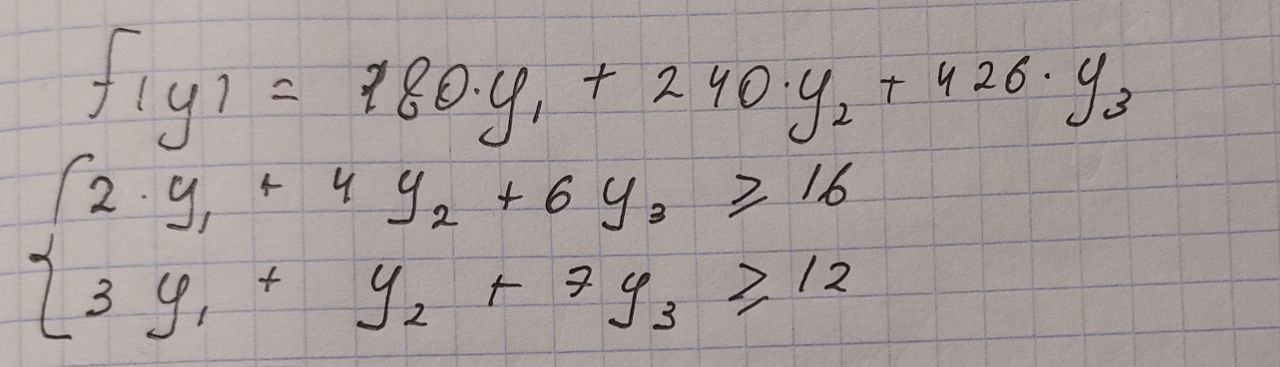 f(y) = 180·y₁ + 240·y₂ + 426·y₃
2·y₁ + 4y₂ + 6y₃ ≥ 16
3y₁ + y₂ + 7y₃ ≥ 12